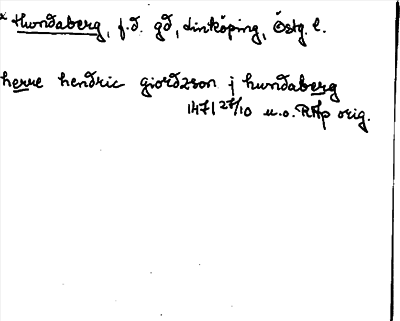 x Hundaberg, f.d. gd, Linköping, Östg. l.
herre hendric giordzson j hundaberg
1471 27/10 u.o. RAp orig.